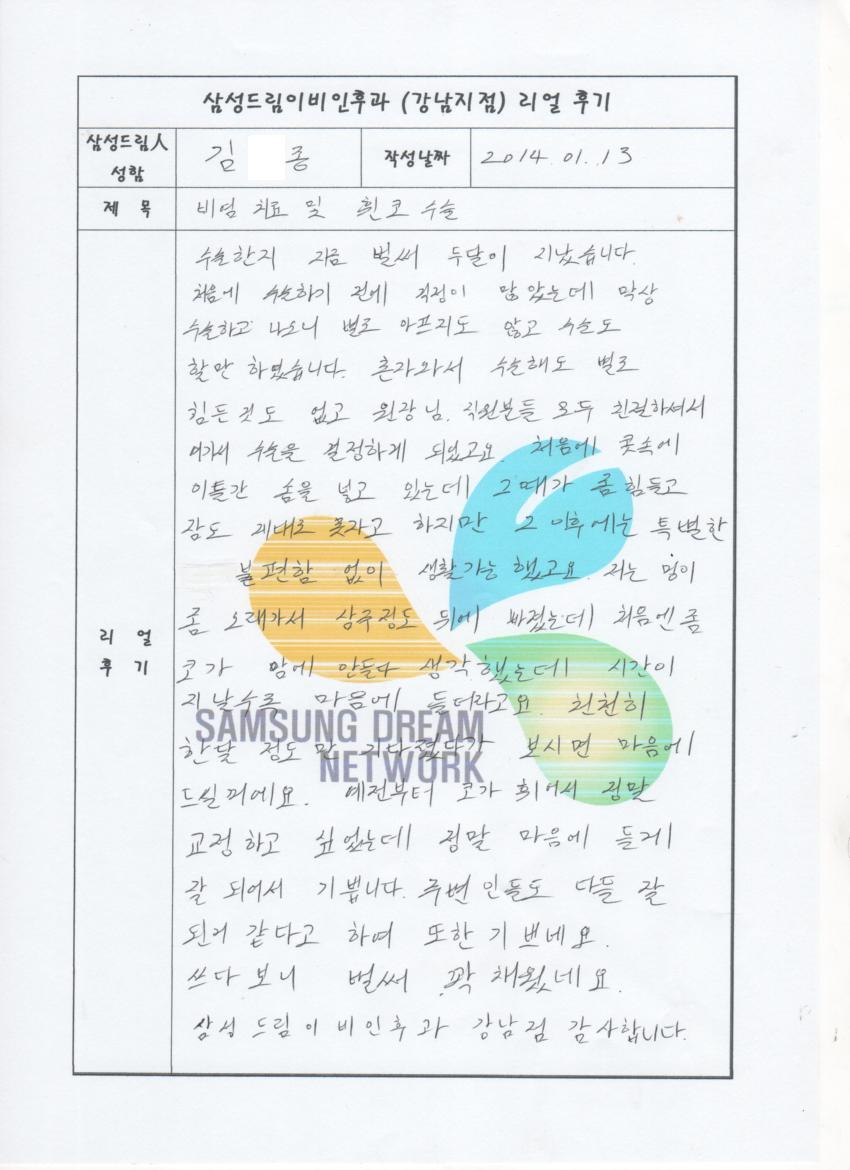 삼성드림이비인후과 (강남지점) 리얼 후기
삼성드림人 성함
김 종
작성날짜
2014. 01. 13
제 목
비염 치료 및 휜코 수술
리 얼 후 기
수술한지 지금 벌써 두달이 지났습니다.
처음에 수술하기 전에 걱정이 많았는데 막상
수술하고 나오니 별로 아프지도 않고 수술도
할만 하였습니다. 혼자와서 수술해도 별로
힘든것도 없고 원장님, 직원분들 모두 친절하셔서
여기서 수술을 결정하게 되었고요. 처음에 콧속에
이틀간 솜을 넣고 있는데 그때가 좀 힘들고
잠도 제대로 못자고 하지만 그 이후에는 특별한
불편함 없이 생활가능 했고요. 저는 멍이
좀 오래가서 삼주정도 뒤에 빠졌는데 처음엔 좀
코가 맘에 안들다 생각했는데 시간이
지날수록 마음에 들더라고요. 천천히
한달 정도만 기다렸다가 보시면 마음에
드실꺼에요. 예전부터 코가 휘어서 정말
교정하고 싶었는데 정말 마음에 들게
잘 되어서 기쁩니다. 주변인들도 다들 잘
된거 같다고 하여 또한 기쁘네요.
쓰다보니 벌써 꽉 채웠네요.
삼성드림이비인후과 강남점 감사합니다.
SAMSUNG DREAM
NETWORK